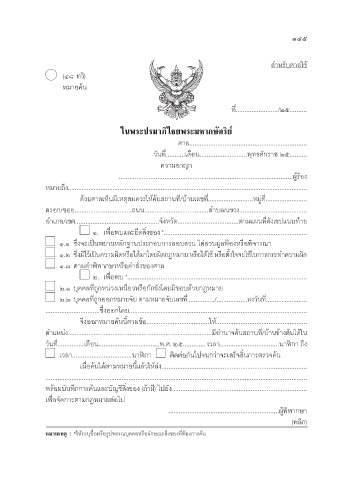 ๑๔๕
สำหรับศาลใช้
(๔๘ ทวิ)
หมายค้น
ที่........................./๒๕..........
ในพระปรมาภิไธยพระมหากษัตริย์
ศาล..............................................................
วันที่...........เดือน............................พุทธศักราช ๒๕..........
ความอาญา
..........................................................................................................ผู้ร้อง
หมายถึง..............................................................................................................................
ด้วยศาลเห็นมีเหตุสมควรให้ค้นสถานที่/บ้านเลขที่..........................หมู่ที่........................
ตรอก/ซอย..................................ถนน......................................ตำบล/แขวง.....................................
อำเภอ/เขต..................................................จังหวัด..................................ตามแผนที่สังเขปแนบท้าย
๑. เพื่อพบและยึดสิ่งของ *.....................................................................................
๑.๑ ซึ่งจะเป็นพยานหลักฐานประกอบการสอบสวน ไต่สวนมูลฟ้องหรือพิจารณา
๑.๒ ซึ่งมีไว้เป็นความผิดหรือได้มาโดยผิดกฎหมาย หรือได้ใช้ หรือตั้งใจจะใช้ในการกระทำความผิด
๑.๓ ตามคำพิพากษาหรือคำสั่งของศาล
๒. เพื่อพบ *..............................................................................................
๒.๑ บุคคลที่ถูกหน่วงเหนี่ยวหรือกักขังโดยมิชอบด้วยกฎหมาย
๒.๒ บุคคลที่ถูกออกหมายจับ ตามหมายจับเลขที่................/..................ลงวันที่........................
..............................ซึ่งออกโดย.......................................................................................
จึงออกหมายค้นนี้ตามข้อ....................................ให้...........................................................
ตำแหน่ง.....................................................................................มีอำนาจค้นสถานที่/บ้านข้างต้นได้ใน
วันที่................เดือน....................................พ.ศ. ๒๕............. เวลา...................................นาฬิกา ถึง
เวลา...................................นาฬิกา ติดต่อกันไปจนกว่าจะเสร็จสิ้นการตรวจค้น
เมื่อค้นได้ตามหมายนี้แล้วให้ส่ง.................................................................................
..................................................................................................................................
พร้อมบันทึกการค้นและบัญชีสิ่งของ (ถ้ามี) ไปยัง...........................................................................
เพื่อจัดการตามกฎหมายต่อไป
..................................................................ผู้พิพากษา
(พลิก)
หมายเหตุ : *ให้ระบุชื่อหรือรูปพรรณบุคคลหรือลักษณะสิ่งของที่ต้องการค้น